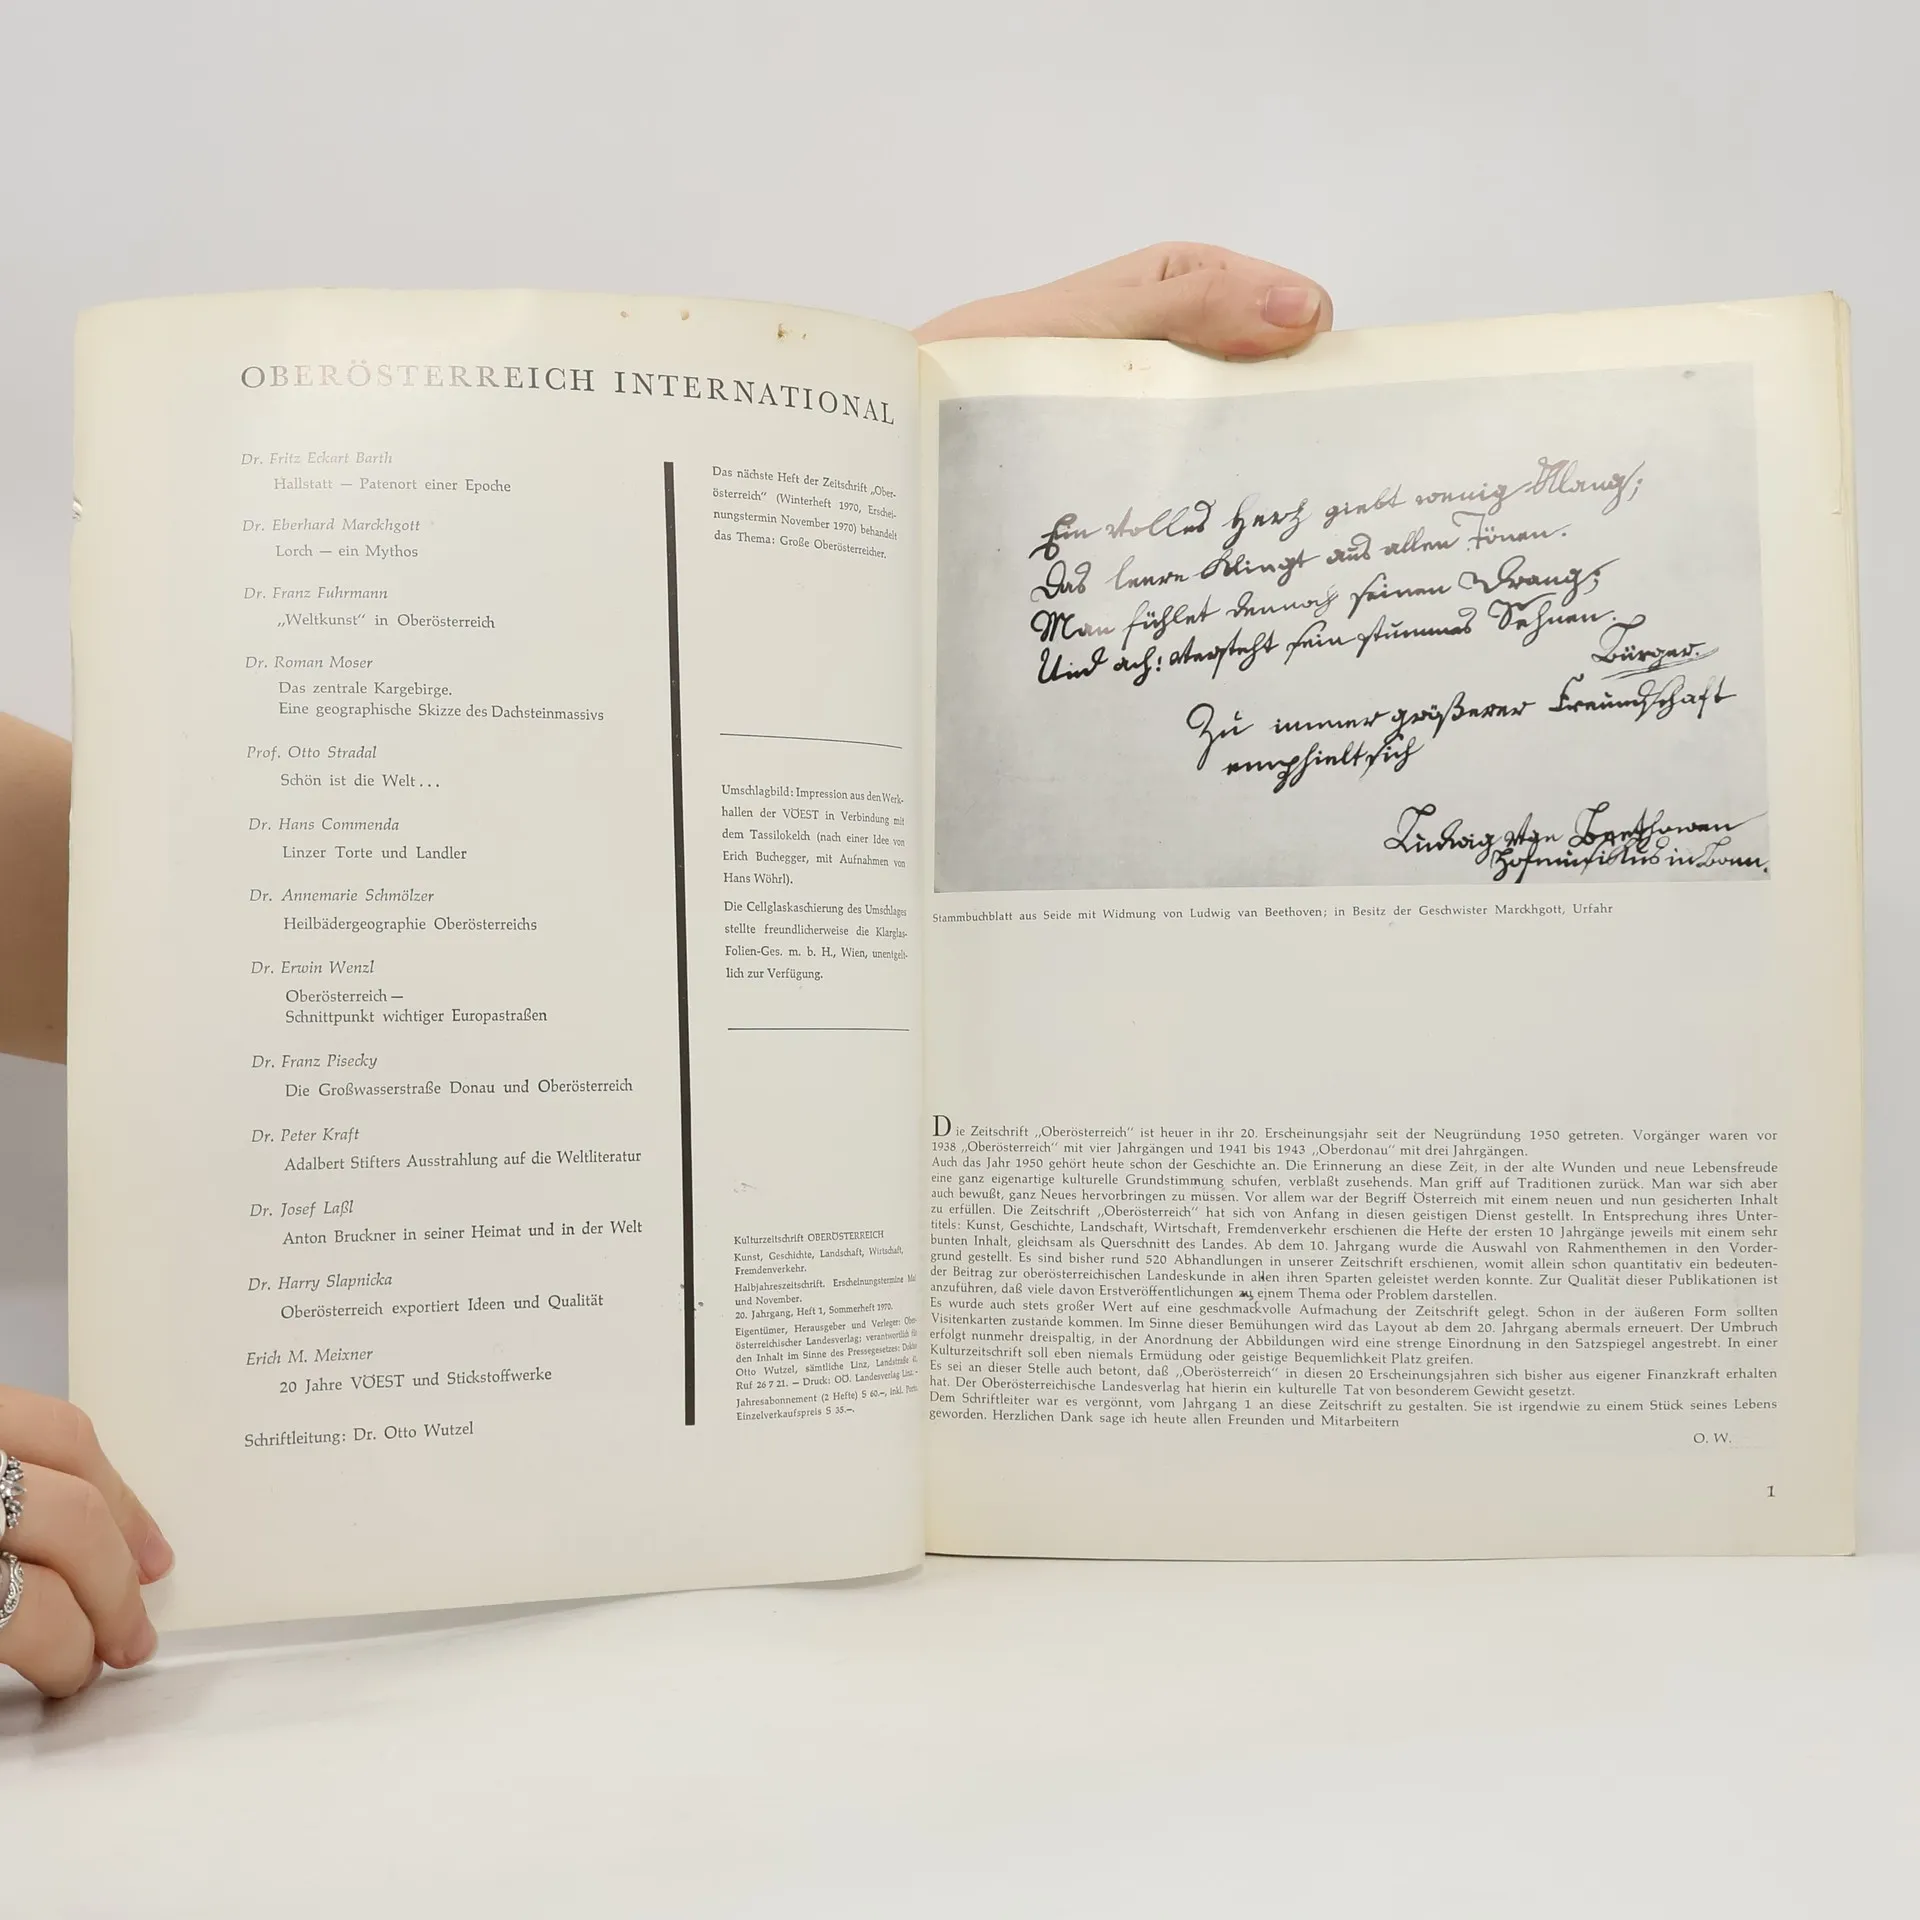 OBERÖSTERREICH INTERNATIONAL
Dr. Fritz Eckart Barth
Hallstatt — Patenort einer Epoche
Dr. Eberhard Marckhgott
Lorch — ein Mythos
Dr. Franz Fuhrmann
„Weltkunst“ in Oberösterreich
Dr. Roman Moser
Das zentrale Kargebirge.
Eine geographische Skizze des Dachsteinmassivs
Prof. Otto Stradal
Schön ist die Welt . . .
Dr. Hans Commenda
Linzer Torte und Landler
Dr. Annemarie Schmölzer
Heilbädergeographie Oberösterreichs
Dr. Erwin Wenzl
Oberösterreich —
Schnittpunkt wichtiger Europastraßen
Dr. Franz Pisecky
Die Großwasserstraße Donau und Oberösterreich
Dr. Peter Kraft
Adalbert Stifters Ausstrahlung auf die Weltliteratur
Dr. Josef Laßl
Anton Bruckner in seiner Heimat und in der Welt
Dr. Harry Slapnicka
Oberösterreich exportiert Ideen und Qualität
Erich M. Meixner
20 Jahre VÖEST und Stickstoffwerke
Schriftleitung: Dr. Otto Wutzel
Das nächste Heft der Zeitschrift „Ober-
österreich“ (Winterheft 1970, Erschei-
nungstermin November 1970) behandelt
das Thema: Große Oberösterreicher.
Umschlagbild: Impression aus den Werk-
hallen der VÖEST in Verbindung mit
dem Tassilokelch (nach einer Idee von
Erich Buchegger, mit Aufnahmen von
Hans Wöhrl).
Die Cellglaskaschierung des Umschlages
stellte freundlicherweise die Klarglas-
Folien-Ges. m. b. H., Wien, unentgelt-
lich zur Verfügung.
Kulturzeitschrift OBERÖSTERREICH
Kunst, Geschichte, Landschaft, Wirtschaft,
Fremdenverkehr.
Halbjahreszeitschrift. Erscheinungstermine Mai
und November.
20. Jahrgang, Heft 1, Sommerheft 1970.
Eigentümer, Herausgeber und Verleger: Obe-
österreichischer Landesverlag; verantwortlich für
den Inhalt im Sinne des Pressegesetzes: Doktor
Otto Wutzel, sämtliche Linz, Landstraße 41,
Ruf 26 7 21. — Druck: OÖ. Landesverlag Linz. -
Jahresabonnement (2 Hefte) S 60.–, inkl. Porto.
Einzelverkaufspreis S 35.–.
Ein volles Hertz giebt wenig Klang;
Das leere Klingt aus allen Tönen.
Man fühlet dennoch seinen Drang;
Und ach! versteht sein stummes Sehnen.
Bürger.
Zu immer größerer Freundschaft
emphielt sich
Ludwig van Beethowen
Hofmusikus in Bonn.
Stammbuchblatt aus Seide mit Widmung von Ludwig van Beethoven; in Besitz der Geschwister Marckhgott, Urfahr
Die Zeitschrift „Oberösterreich“ ist heuer in ihr 20. Erscheinungsjahr seit der Neugründung 1950 getreten. Vorgänger waren vor
1938 „Oberösterreich“ mit vier Jahrgängen und 1941 bis 1943 „Oberdonau“ mit drei Jahrgängen.
Auch das Jahr 1950 gehört heute schon der Geschichte an. Die Erinnerung an diese Zeit, in der alte Wunden und neue Lebensfreude
eine ganz eigenartige kulturelle Grundstimmung schufen, verblaßt zusehends. Man griff auf Traditionen zurück. Man war sich aber
auch bewußt, ganz Neues hervorbringen zu müssen. Vor allem war der Begriff Österreich mit einem neuen und nun gesicherten Inhalt
zu erfüllen. Die Zeitschrift „Oberösterreich“ hat sich von Anfang in diesen geistigen Dienst gestellt. In Entsprechung ihres Unter-
titels: Kunst, Geschichte, Landschaft, Wirtschaft, Fremdenverkehr erschienen die Hefte der ersten 10 Jahrgänge jeweils mit einem sehr
bunten Inhalt, gleichsam als Querschnitt des Landes. Ab dem 10. Jahrgang wurde die Auswahl von Rahmenthemen in den Vorder-
grund gestellt. Es sind bisher rund 520 Abhandlungen in unserer Zeitschrift erschienen, womit allein schon quantitativ ein bedeuten-
der Beitrag zur oberösterreichischen Landeskunde in allen ihren Sparten geleistet werden konnte. Zur Qualität dieser Publikationen ist
anzuführen, daß viele davon Erstveröffentlichungen zu einem Thema oder Problem darstellen.
Es wurde auch stets großer Wert auf eine geschmackvolle Aufmachung der Zeitschrift gelegt. Schon in der äußeren Form sollten
Visitenkarten zustande kommen. Im Sinne dieser Bemühungen wird das Layout ab dem 20. Jahrgang abermals erneuert. Der Umbruch
erfolgt nunmehr dreispaltig, in der Anordnung der Abbildungen wird eine strenge Einordnung in den Satzspiegel angestrebt. In einer
Kulturzeitschrift soll eben niemals Ermüdung oder geistige Bequemlichkeit Platz greifen.
Es sei an dieser Stelle auch betont, daß „Oberösterreich“ in diesen 20 Erscheinungsjahren sich bisher aus eigener Finanzkraft erhalten
hat. Der Oberösterreichische Landesverlag hat hierin ein kulturelle Tat von besonderem Gewicht gesetzt.
Dem Schriftleiter war es vergönnt, vom Jahrgang 1 an diese Zeitschrift zu gestalten. Sie ist irgendwie zu einem Stück seines Lebens
geworden. Herzlichen Dank sage ich heute allen Freunden und Mitarbeitern
O. W.
1